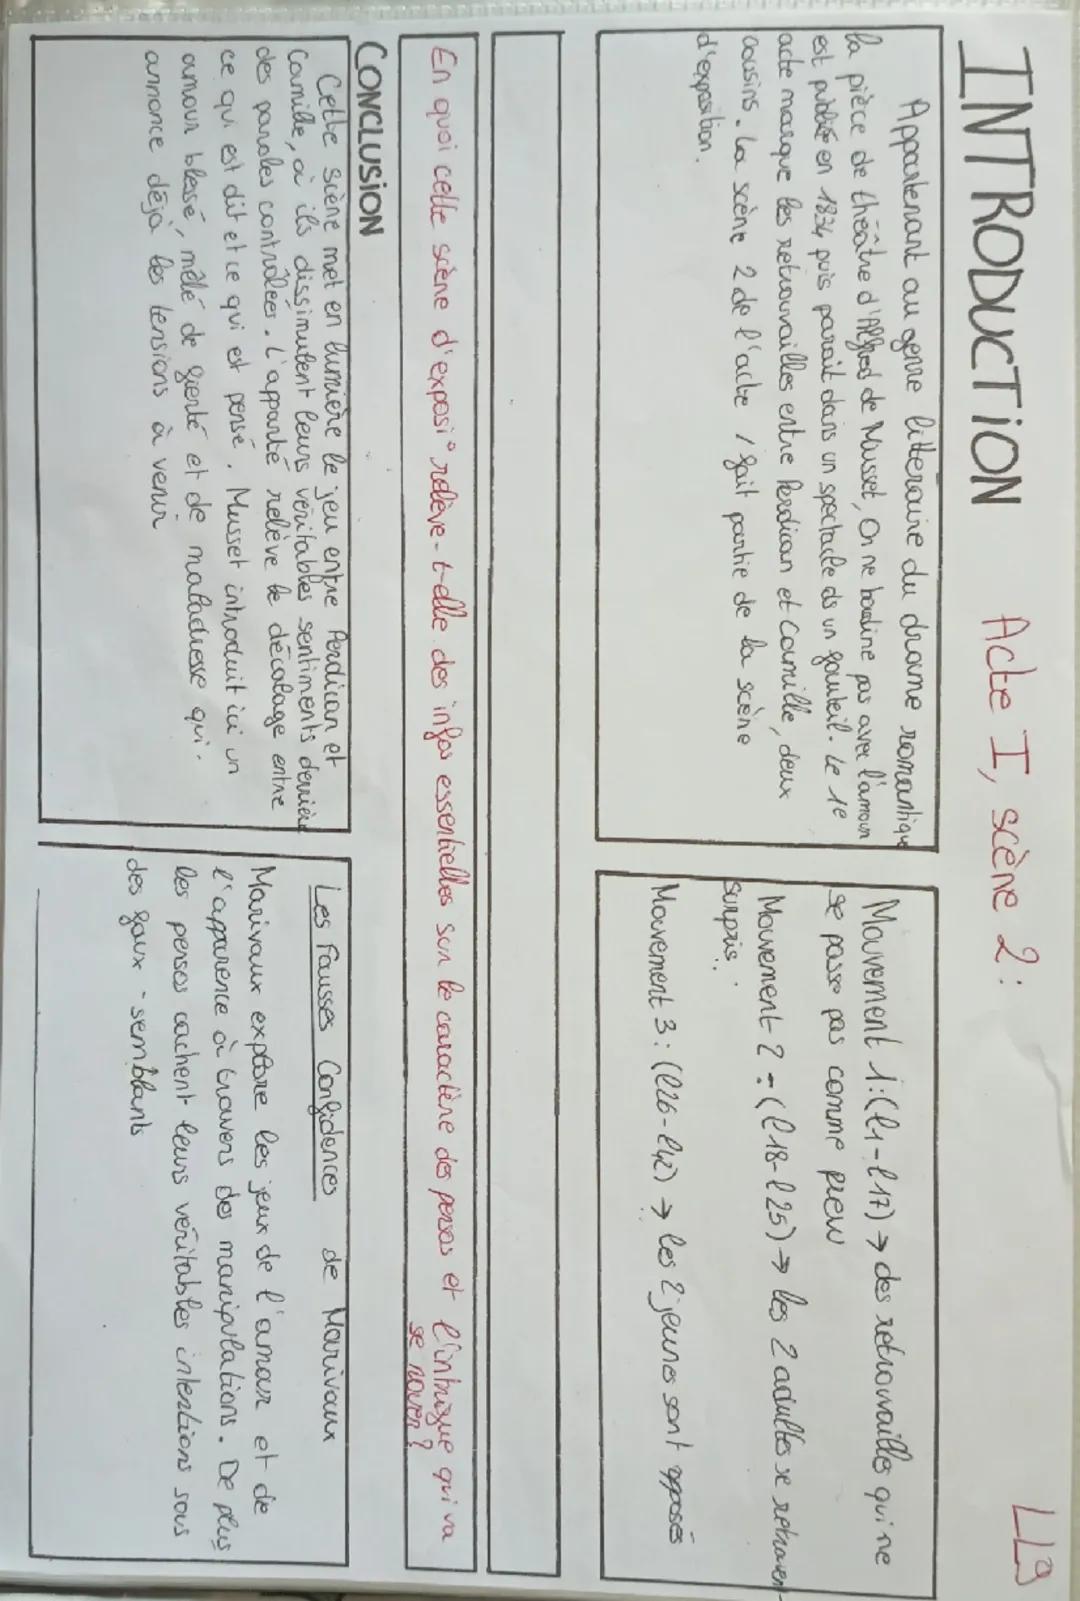 INTRODUCTION Acte I, scène 2 : LL9
Appartenant au genre littéraire du drame romantique
la pièce de théâtre d'Alfred de Musset, On ne badine pas avec l'amour
est publiée en 1834 puis parait dans un spectacle ds un fauteuil. Le 1e
acte marque les retrouvailles entre Perdican et Camille, deux
cousins. La scène 2 de l'acte 1 fait partie de la scène
d'exposition.
Mouvement 1 : (l1-l17) → des retrouvailles qui ne
se passe pas comme prévu
Mouvement 2 : (l18-l25) → les 2 adultes se retrouvent
surpris.
Mouvement 3 : (l26-l42) → les 2 jeunes sont opposés
En quoi cette scène d'exposi° relève-t-elle des infos essentielles sur le caractère des persos et l'intrigue qui va
se nouer ?
CONCLUSION
Cette scène met en lumière le jeu entre Perdican et
Camille, où ils dissimulent leurs véritables sentiments derrière
des paroles contrôlées. L'apparté relève le décalage entre
ce qui est dit et ce qui est pensé. Musset introduit ici un
amour blessé, mêlé de fierté et de maladresse qui
annonce déjà les tensions à venir
Les Fausses Confidences de Marivaux
Marivaux explore les jeux de l'amour et de
l'apparence à travers des manipulations. De plus
les persos cachent leurs véritables intentions sous
des faux-semblants